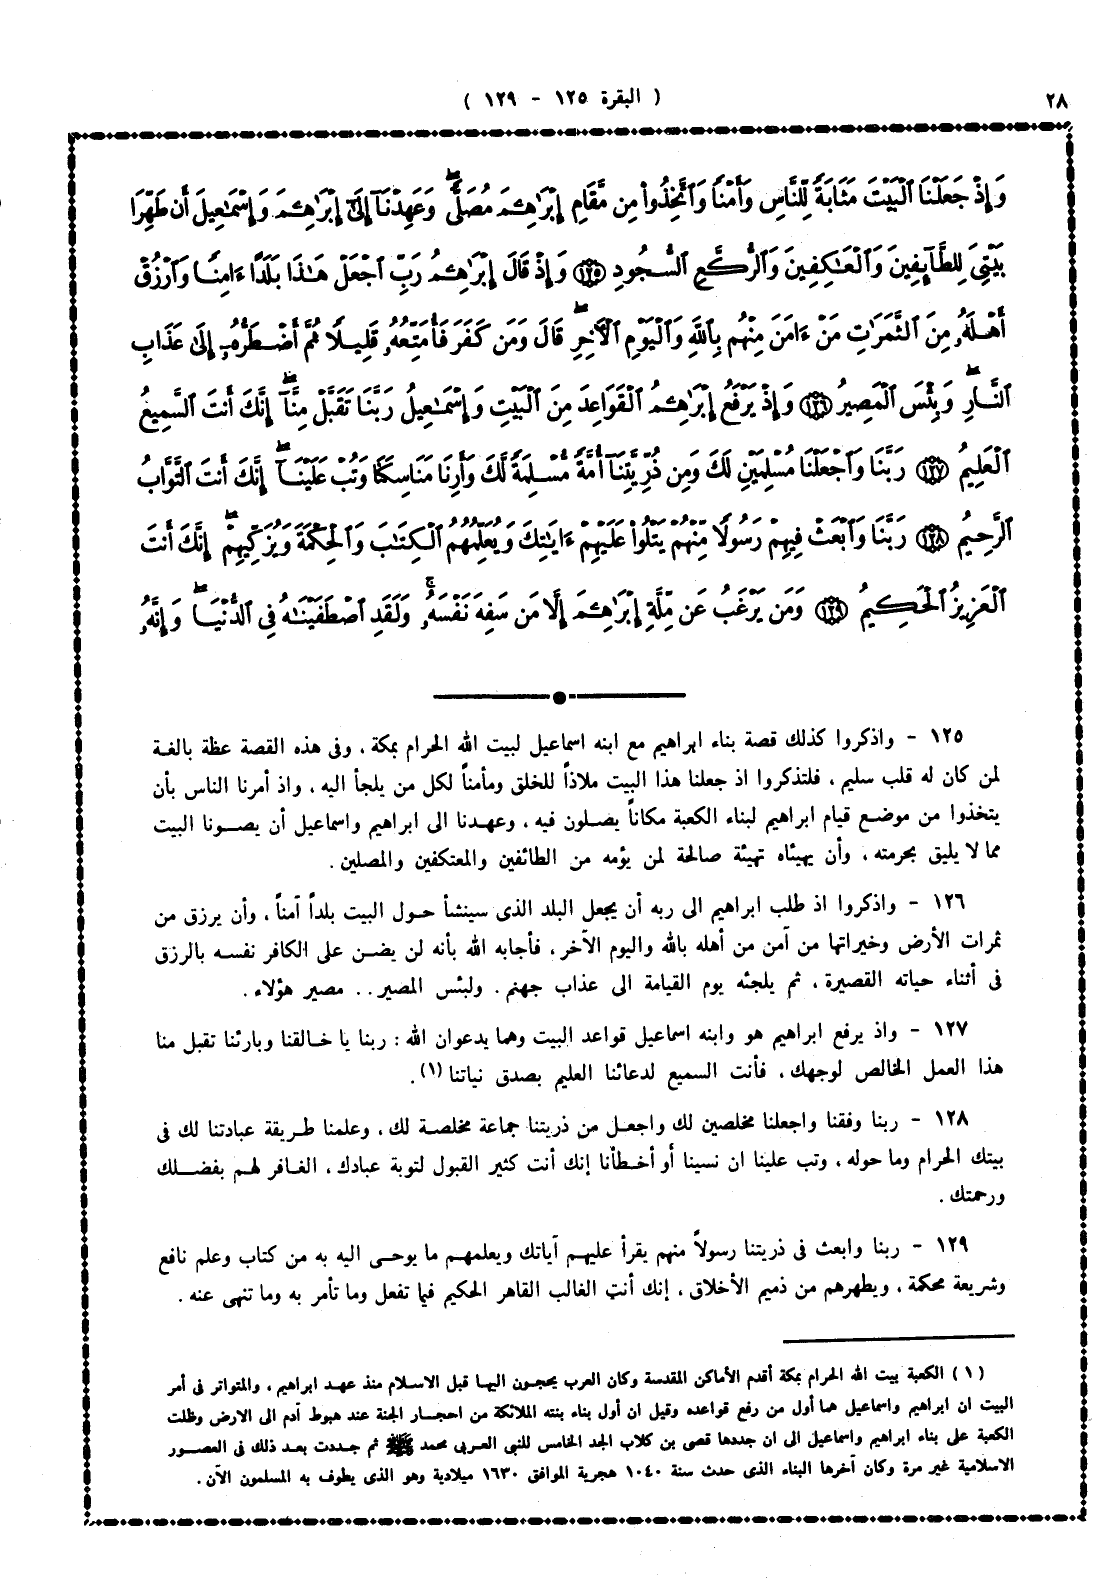 ٢٨
( البقرة ١٢٥ - ١٢٩ )
وَإِذْ جَعَلْنَا ٱلْبَيْتَ مَثَابَةً لِّلنَّاسِ وَأَمْنًا وَٱتَّخِذُوا۟ مِن مَّقَامِ إِبْرَٰهِـۧمَ مُصَلًّى ۖ وَعَهِدْنَآ إِلَىٰٓ إِبْرَٰهِـۧمَ وَإِسْمَـٰعِيلَ أَن طَهِّرَا
بَيْتِىَ لِلطَّآئِفِينَ وَٱلْعَـٰكِفِينَ وَٱلرُّكَّعِ ٱلسُّجُودِ ﴿١٢٥﴾ وَإِذْ قَالَ إِبْرَٰهِـۧمُ رَبِّ ٱجْعَلْ هَـٰذَا بَلَدًا ءَامِنًا وَٱرْزُقْ
أَهْلَهُۥ مِنَ ٱلثَّمَرَٰتِ مَنْ ءَامَنَ مِنْهُم بِٱللَّهِ وَٱلْيَوْمِ ٱلْـَٔاخِرِ ۖ قَالَ وَمَن كَفَرَ فَأُمَتِّعُهُۥ قَلِيلًا ثُمَّ أَضْطَرُّهُۥٓ إِلَىٰ عَذَابِ
ٱلنَّارِ ۖ وَبِئْسَ ٱلْمَصِيرُ ﴿١٢٦﴾ وَإِذْ يَرْفَعُ إِبْرَٰهِـۧمُ ٱلْقَوَاعِدَ مِنَ ٱلْبَيْتِ وَإِسْمَـٰعِيلُ رَبَّنَا تَقَبَّلْ مِنَّآ ۖ إِنَّكَ أَنتَ ٱلسَّمِيعُ
ٱلْعَلِيمُ ﴿١٢٧﴾ رَبَّنَا وَٱجْعَلْنَا مُسْلِمَيْنِ لَكَ وَمِن ذُرِّيَّتِنَآ أُمَّةً مُّسْلِمَةً لَّكَ وَأَرِنَا مَنَاسِكَنَا وَتُبْ عَلَيْنَآ ۖ إِنَّكَ أَنتَ ٱلتَّوَّابُ
ٱلرَّحِيمُ ﴿١٢٨﴾ رَبَّنَا وَٱبْعَثْ فِيهِمْ رَسُولًا مِّنْهُمْ يَتْلُوا۟ عَلَيْهِمْ ءَايَـٰتِكَ وَيُعَلِّمُهُمُ ٱلْكِتَـٰبَ وَٱلْحِكْمَةَ وَيُزَكِّيهِمْ ۖ إِنَّكَ أَنتَ
ٱلْعَزِيزُ ٱلْحَكِيمُ ﴿١٢٩﴾ وَمَن يَرْغَبُ عَن مِّلَّةِ إِبْرَٰهِـۧمَ إِلَّا مَن سَفِهَ نَفْسَهُۥ ۚ وَلَقَدِ ٱصْطَفَيْنَـٰهُ فِى ٱلدُّنْيَا ۖ وَإِنَّهُۥ
١٢٥ - واذكروا كذلك قصة بناء ابراهيم مع ابنه اسماعيل لبيت الله الحرام بمكة ، وفى هذه القصة عظة بالغة
لمن كان له قلب سليم ، فلتذكروا اذ جعلنا هذا البيت ملاذاً للخلق ومأمناً لكل من يلجأ اليه ، واذ أمرنا الناس بأن
يتخذوا من موضع قيام ابراهيم لبناء الكعبة مكاناً يصلون فيه ، وعهدنا الى ابراهيم واسماعيل أن يصونا البيت
مما لا يليق بحرمته ، وأن يهيئاه تهيئة صالحة لمن يؤمه من الطائفين والمعتكفين والمصلين .
١٢٦ - واذكروا اذ طلب ابراهيم الى ربه أن يجعل البلد الذى سينشأ حول البيت بلداً آمناً ، وأن يرزق من
ثمرات الأرض وخيراتها من آمن من أهله بالله واليوم الآخر ، فأجابه الله بأنه لن يضن على الكافر نفسه بالرزق
فى أثناء حياته القصيرة ، ثم يلجئه يوم القيامة الى عذاب جهنم . ولبئس المصير .. مصير هؤلاء .
١٢٧ - واذ يرفع ابراهيم هو وابنه اسماعيل قواعد البيت وهما يدعوان الله : ربنا يا خالقنا وبارئنا تقبل منا
هذا العمل الخالص لوجهك ، فأنت السميع لدعائنا العليم بصدق نياتنا (١) .
١٢٨ - ربنا وفقنا واجعلنا مخلصين لك واجعل من ذريتنا جماعة مخلصة لك ، وعلمنا طريقة عبادتنا لك فى
بيتك الحرام وما حوله ، وتب علينا ان نسينا أو أخطأنا إنك أنت كثير القبول لتوبة عبادك ، الغافر لهم بفضلك
ورحمتك .
١٢٩ - ربنا وابعث فى ذريتنا رسولاً منهم يقرأ عليهم آياتك ويعلمهم ما يوحى اليه به من كتاب وعلم نافع
وشريعة محكمة ، ويطهرهم من ذميم الأخلاق ، إنك أنت الغالب القاهر الحكيم فيما تفعل وما تأمر به وما تنهى عنه .
( ١ ) الكعبة بيت الله الحرام بمكة أقدم الأماكن المقدسة وكان العرب يحجون اليها قبل الاسلام منذ عهد ابراهيم ، والمتواتر فى أمر
البيت ان ابراهيم واسماعيل هما أول من رفع قواعده وقيل ان أول بناء بنته الملائكة من احجار الجنة عند هبوط آدم الى الارض وظلت
الكعبة على بناء ابراهيم واسماعيل الى ان جددها قصى بن كلاب الجد الخامس للنبى العربى محمد ﷺ ثم جددت بعد ذلك فى العصور
الاسلامية غير مرة وكان آخرها البناء الذى حدث سنة ١٠٤٠ هجرية الموافق ١٦٣٠ ميلادية وهو الذى يطوف به المسلمون الآن .